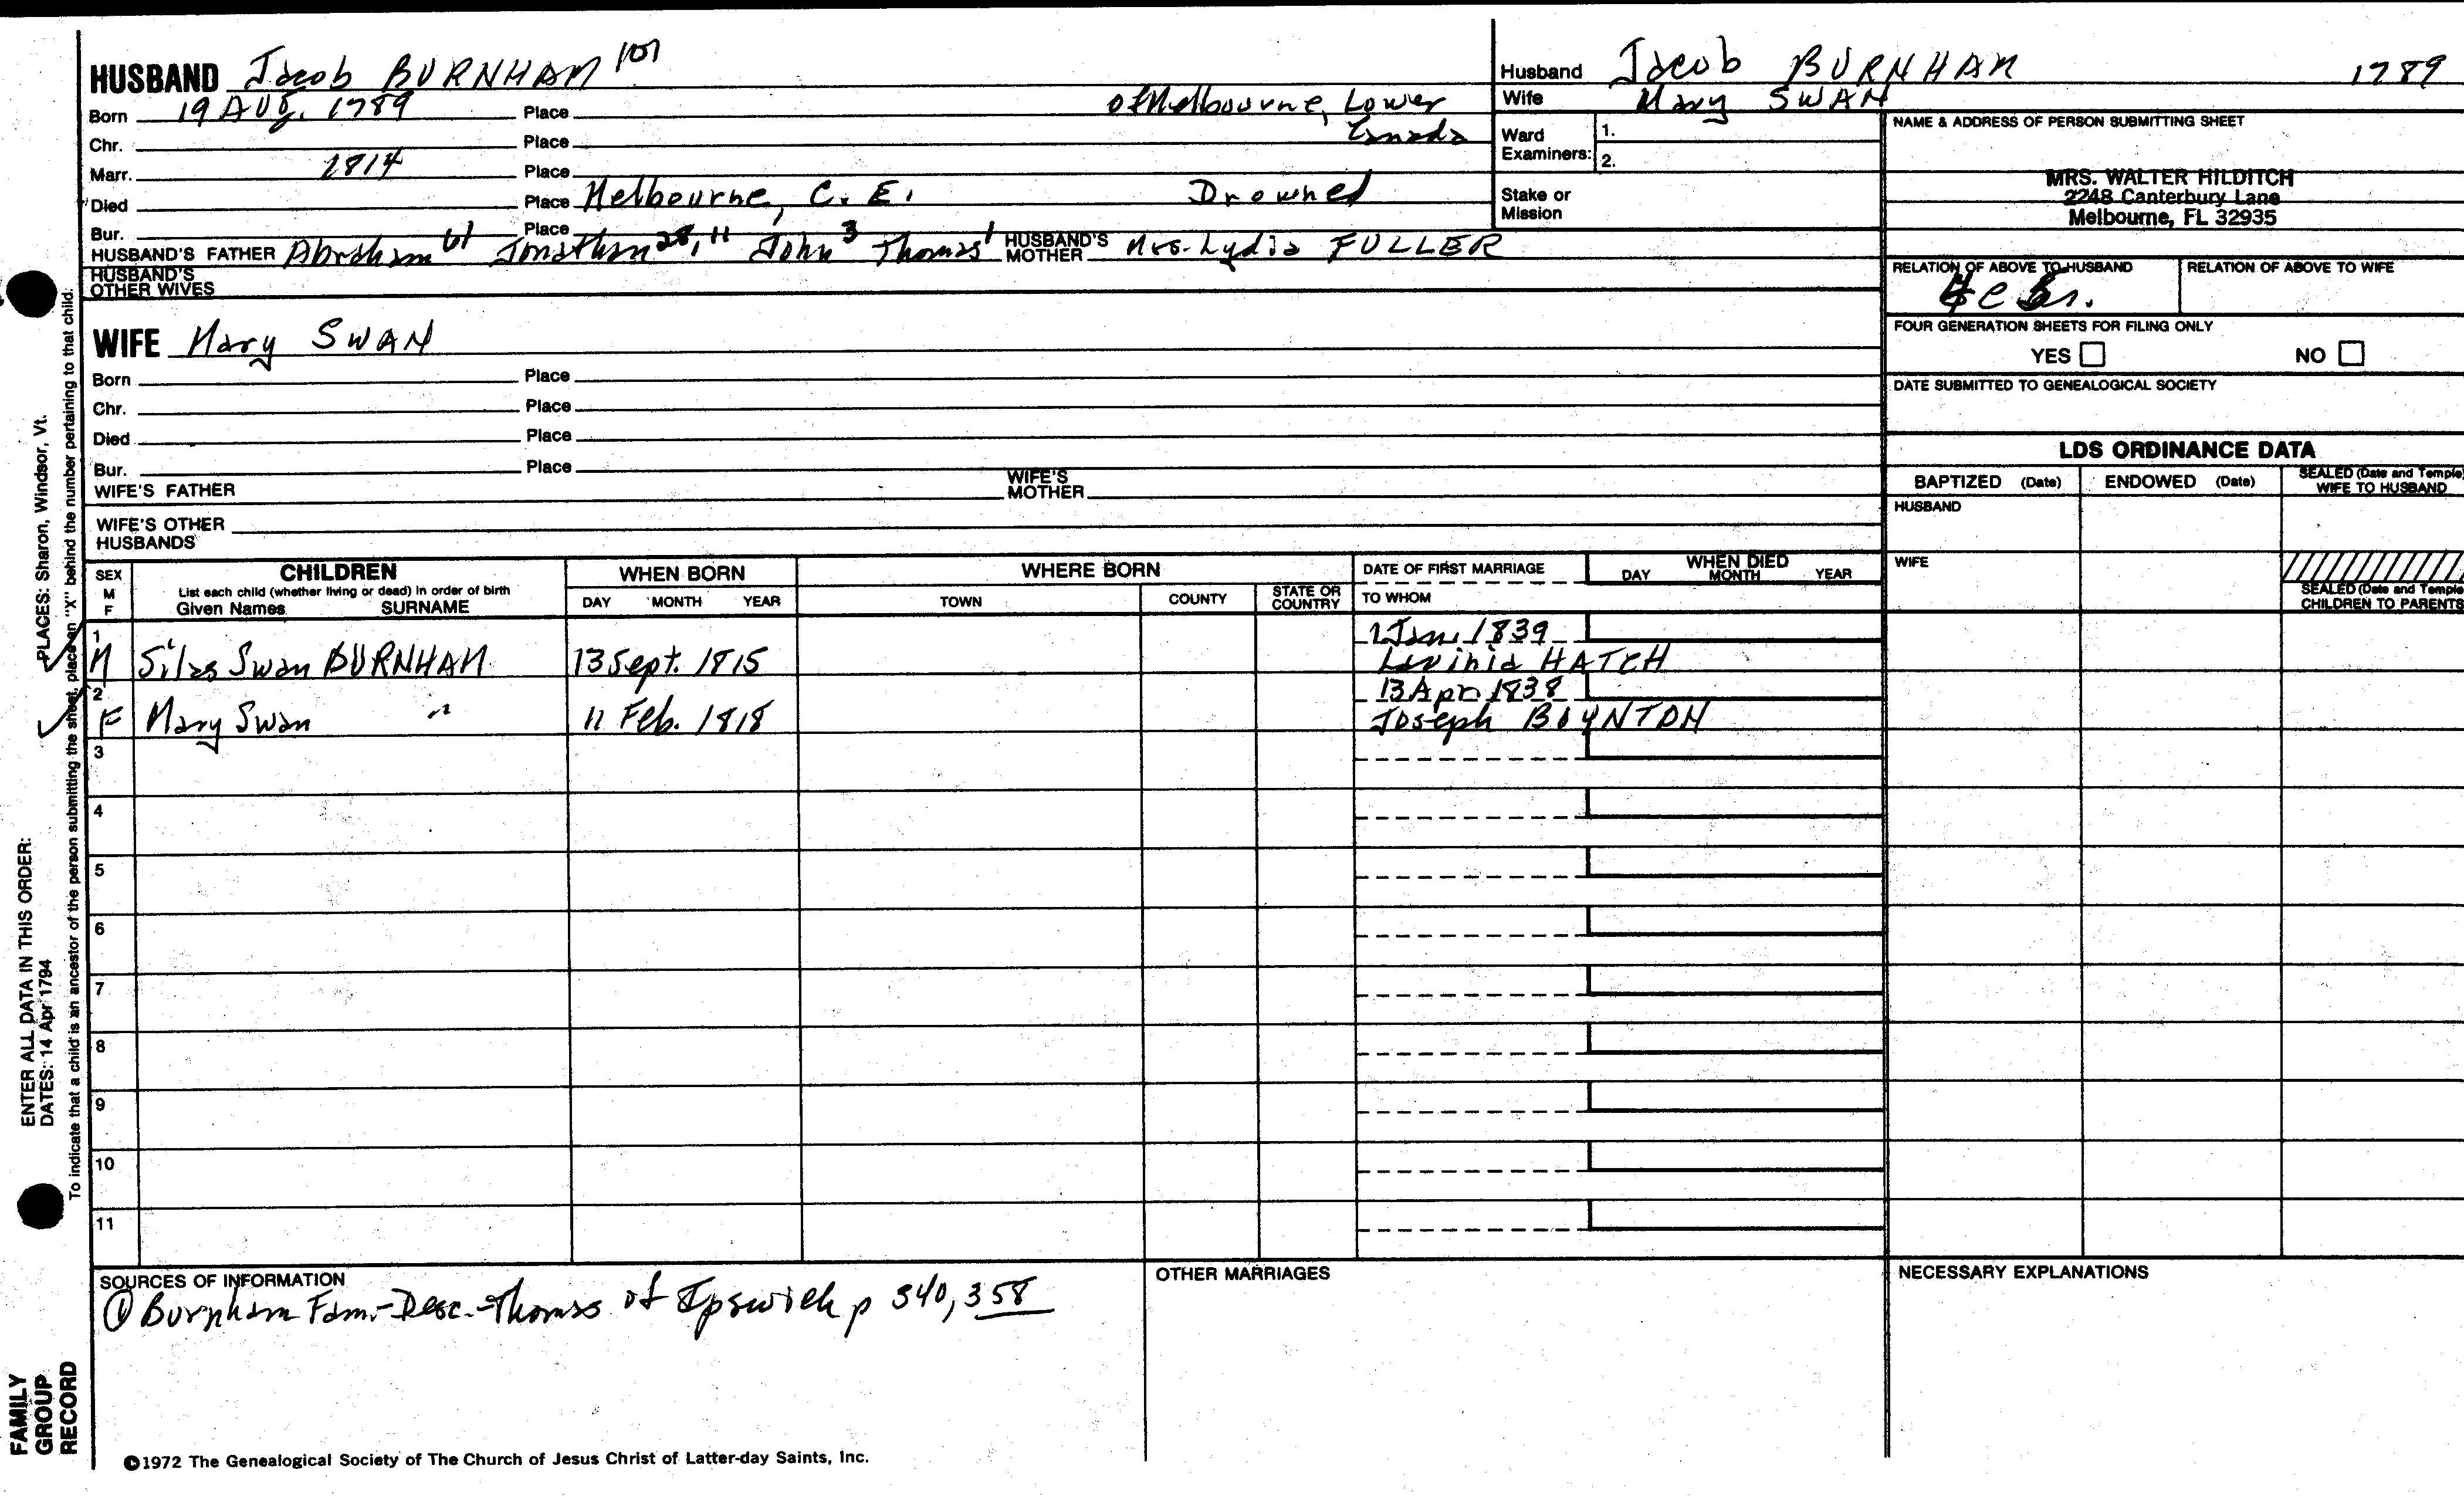 HUSBAND Jacob BURNHAM 107
Born 19 Aug. 1789 Place of Melbourne, Lower Canada
Chr. Place
Marr. 1814 Place
Died Place Melbourne, C. E. Drowned
Bur. Place
HUSBAND'S FATHER Abraham 61 Jonathan 28, 11 John 3 Thomas 1 HUSBAND'S MOTHER Mrs. Lydia FULLER
HUSBAND'S OTHER WIVES
WIFE Mary SWAN
Born Place
Chr. Place
Died Place
Bur. Place
WIFE'S FATHER WIFE'S MOTHER
WIFE'S OTHER HUSBANDS
Husband Jacob BURNHAM 1789
Wife Mary SWAN
Ward Examiners: 1.
2.
Stake or Mission
NAME & ADDRESS OF PERSON SUBMITTING SHEET
MRS. WALTER HILDITCH
2248 Canterbury Lane
Melbourne, FL 32935
RELATION OF ABOVE TO HUSBAND RELATION OF ABOVE TO WIFE
FOUR GENERATION SHEETS FOR FILING ONLY
YES NO
DATE SUBMITTED TO GENEALOGICAL SOCIETY
LDS ORDINANCE DATA
BAPTIZED (Date) ENDOWED (Date) SEALED (Date and Temple) WIFE TO HUSBAND
HUSBAND
WIFE
SEALED (Date and Temple) CHILDREN TO PARENTS
SEX M F CHILDREN WHEN BORN WHERE BORN DATE OF FIRST MARRIAGE WHEN DIED
List each child (whether living or dead) in order of birth
Given Names SURNAME DAY MONTH YEAR TOWN COUNTY STATE OR COUNTRY TO WHOM DAY MONTH YEAR
1 M Silas Swan BURNHAM 13 Sept. 1815 1 Jan. 1839
Lavinia HATCH
2 F Mary Swan " 11 Feb. 1818 13 Apr 1838
Joseph BOYNTON
3
4
5
6
7
8
9
10
11
SOURCES OF INFORMATION
① Burnham Fam.-Desc.-Thomas of Ipswich p 340, 358
OTHER MARRIAGES
NECESSARY EXPLANATIONS
©1972 The Genealogical Society of The Church of Jesus Christ of Latter-day Saints, Inc.
FAMILY GROUP RECORD
ENTER ALL DATA IN THIS ORDER:
DATES: 14 Apr 1794
PLACES: Sharon, Windsor, Vt.
To indicate that a child is an ancestor of the person submitting the sheet, place an "X" behind the number pertaining to that child.